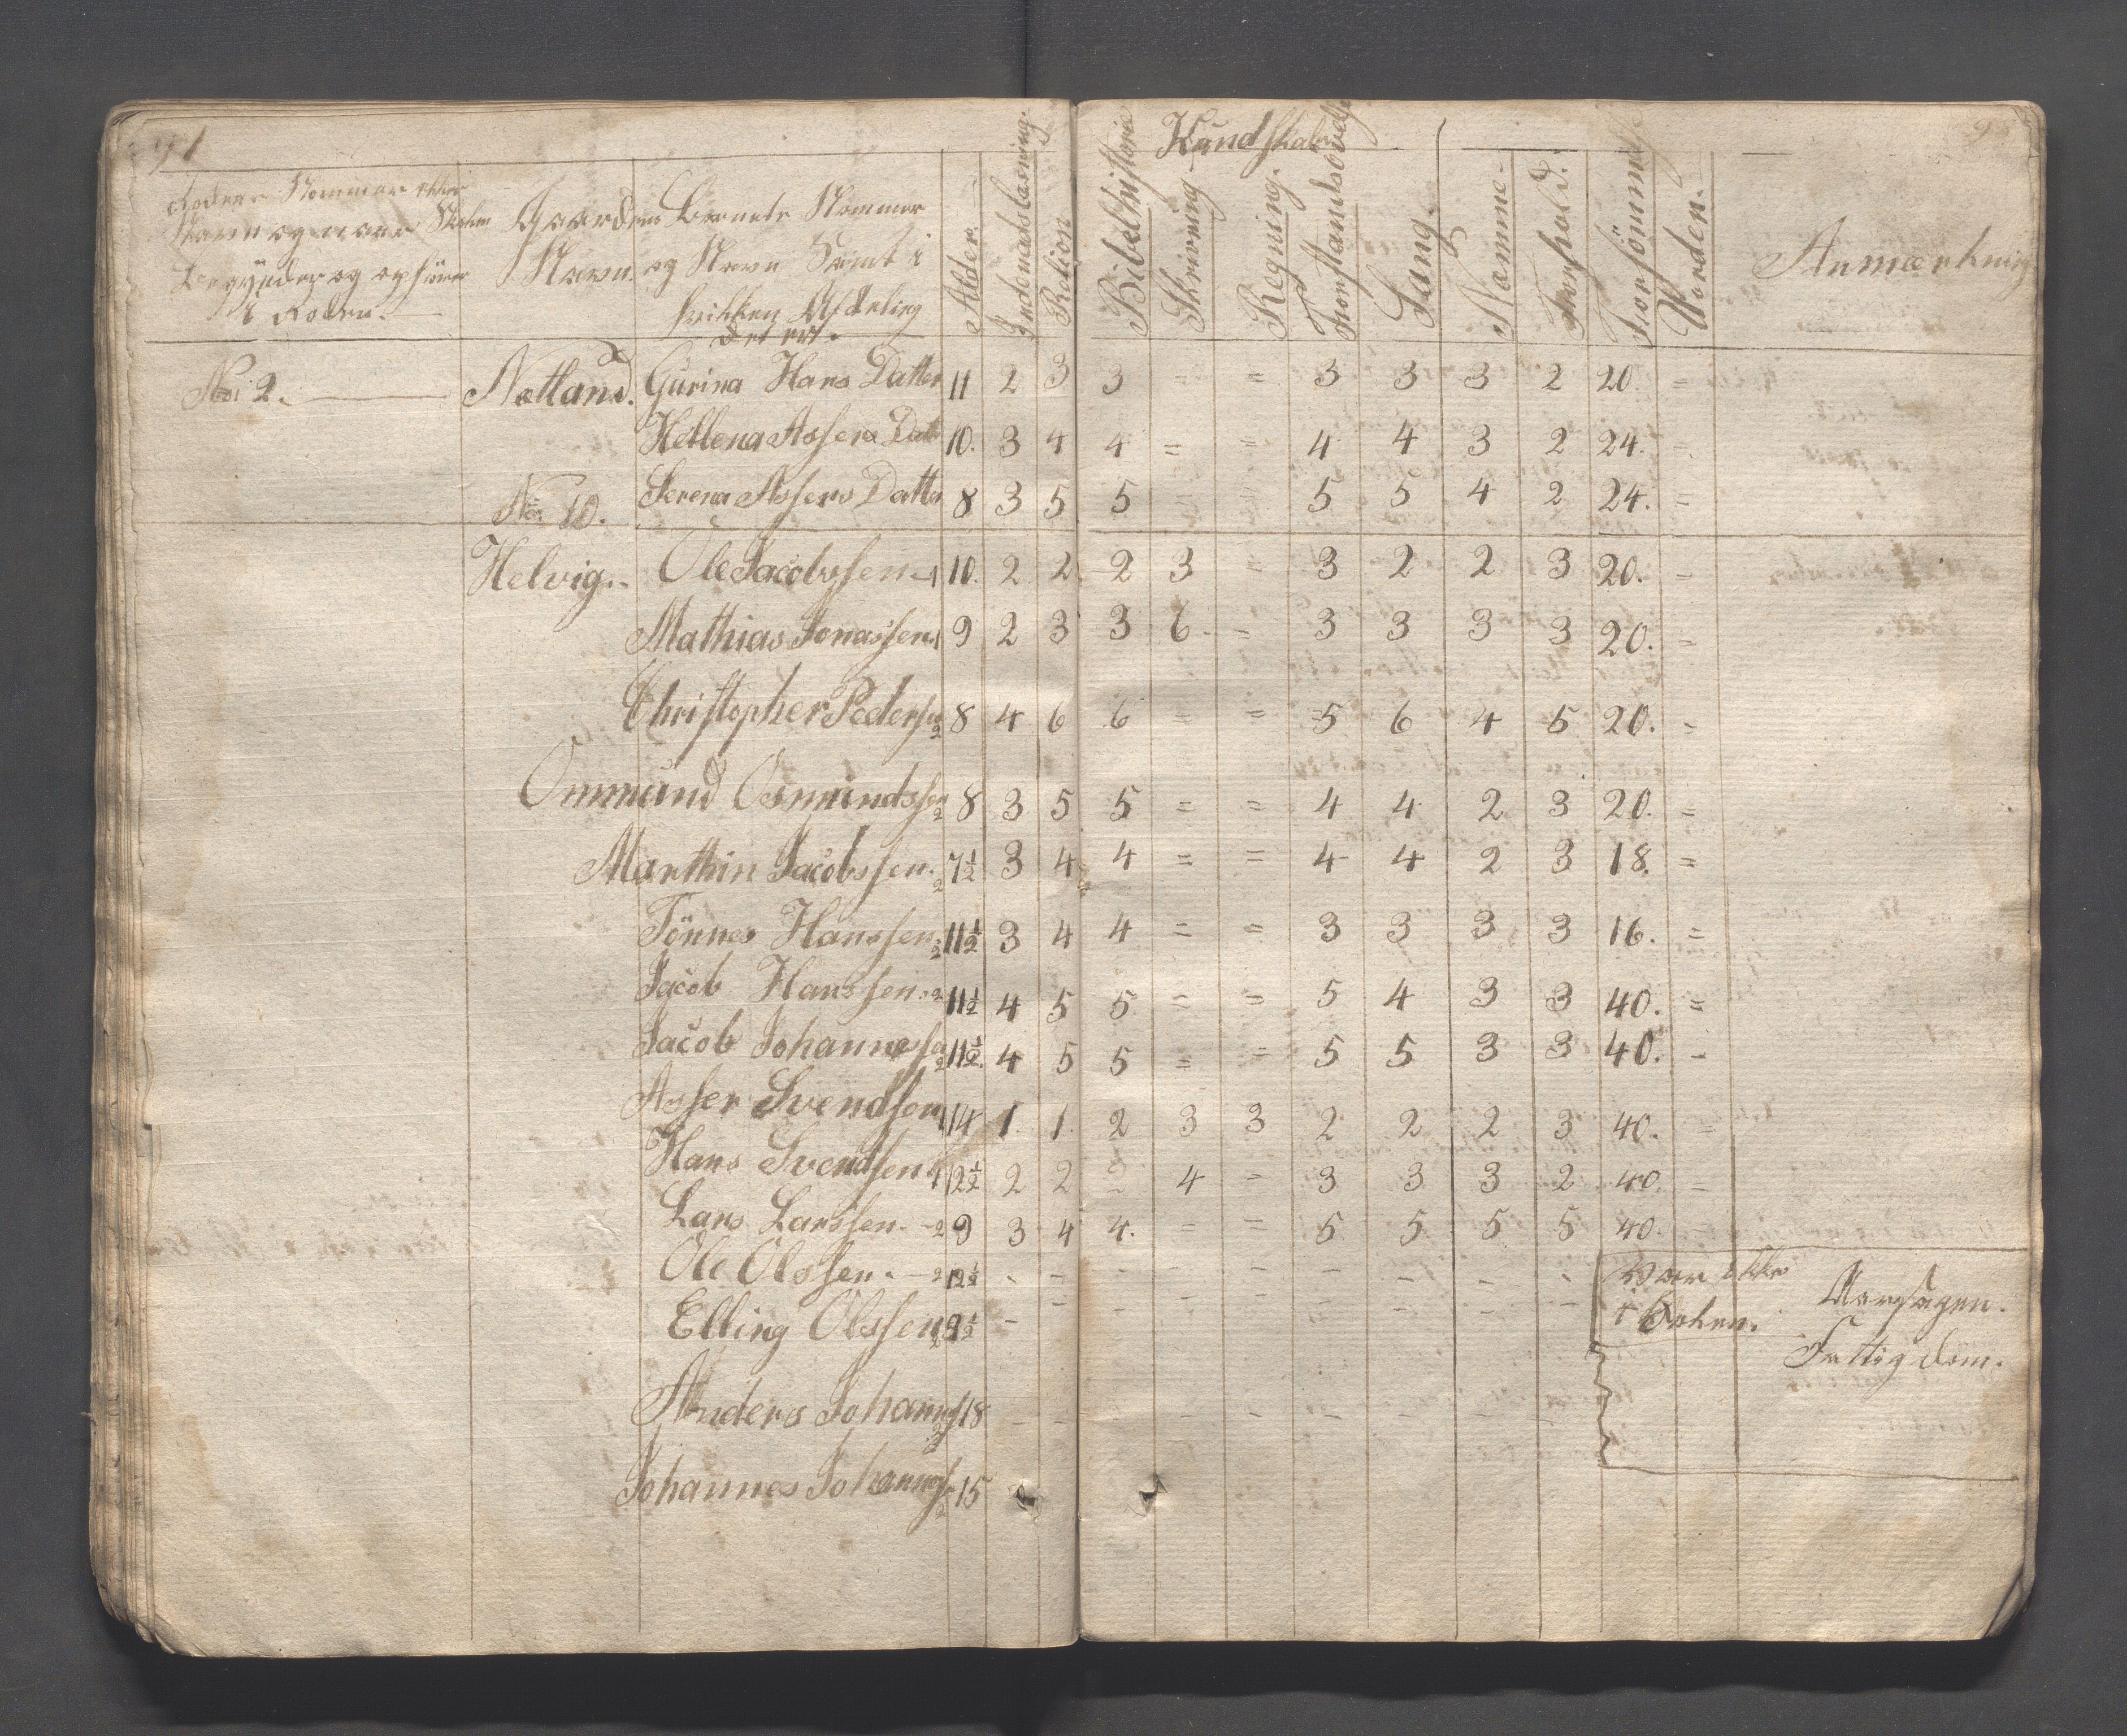 Kundskaber
Rodens Nommer eller
Navn og naar Skolen
begynder og ophører
i Roden.
Gaardens
Navn.
Barnets Nommer
og Navn Samt i
hvilken Afdeling
Det er.
Alder
Indenadslæsning.
Relion
Bibelhistorie
Skrivning
Regning.
Forstandsøvelse
Sang.
Nemme.
Forhold.
Forsømmelse
Verden.
Anmærkning
No: 2. Nætland. Gurina Hans Datter 11 2 3 3 = = 3 3 3 2 20. =
Hellena Assers Datt 10. 3 4 4 = = 4 4 3 2 24. -
Serena Assers Datter 8 3 5 5 = = 5 5 4 2 24. =
No: 10.
Helvig. Ole Jacobssen 1 10. 2 2 2 3 = 3 2 2 3 20. =
Mathias Jonassen 1 9 2 3 3 6 = 3 3 3 3 20. =
Christopher Pedersen 2 8 4 6 6 = = 5 6 4 5 20. =
Ommund Osmundssen 2 8 3 5 5 = = 4 4 2 3 20. =
Marthin Jacobssen. 2 7½ 3 4 4 = = 4 4 2 3 18. =
Tönnes Hanssen 2 11½ 3 4 4 = = 3 3 3 3 16. =
Jacob Hanssen 2 11½ 4 5 5 = = 5 4 3 3 40. =
Jacob Johannessen 2 11½. 4 5 5 = = 5 5 3 3 40. -
Asser Svendsen 1 14 1. 1. 2 3 3 2 2 2 3 40. =
Hans Svendsen 1 12½ 2 2 2 4 = 3 3 3 2 40. =
Lars Larssen. 2 9 3 4 4. = = 5 5 5 5 40. =
Ole Olssen. 2 12½ - - - - - - - - -
Elling Olssen 2 9½ - - - - - - - - -
Var ikke
i Bøken.
Aarsagen.
Fattigdom.
Anders Johanness 2 18 - - - - - - - - -
Johannes Johanness 2 15